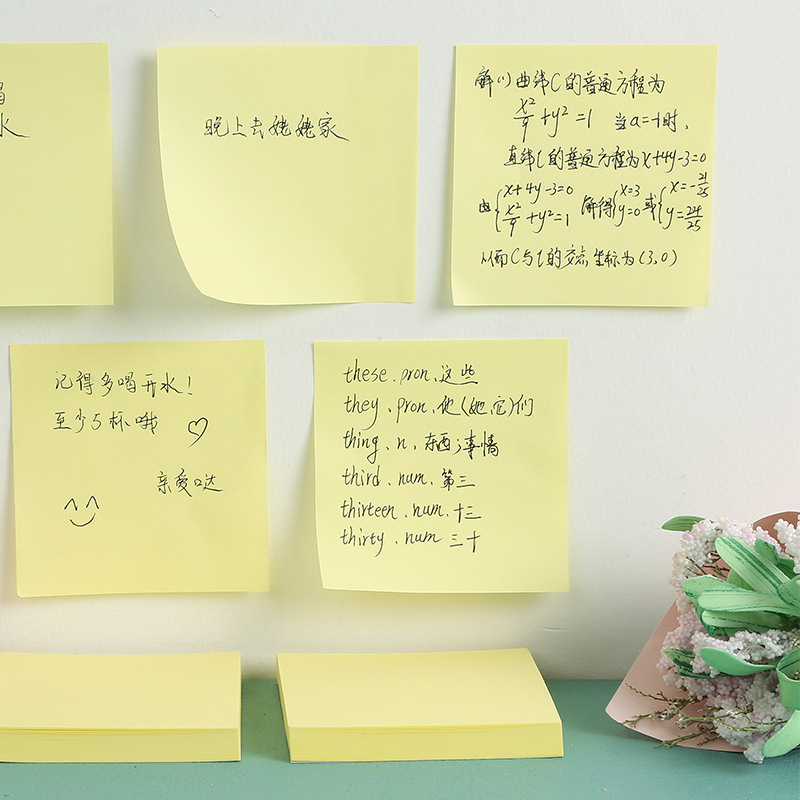 水
晚上去姥姥家
解(1)曲线C的普通方程为
x²/9+y²=1 当a=-1时,
直线l的普通方程为x+4y-3=0
由{x+4y-3=0 x²/9+y²=1 解得{x=3 y=0 或{x=-21/25 y=24/25
从而C与l的交点坐标为(3,0)
记得多喝开水!
至少5杯哦 ♡
亲爱哒
these.pron.这些
they.pron.他(她,它)们
thing.n.东西;事情
third.num.第三
thirteen.num.十三
thirty.num 三十